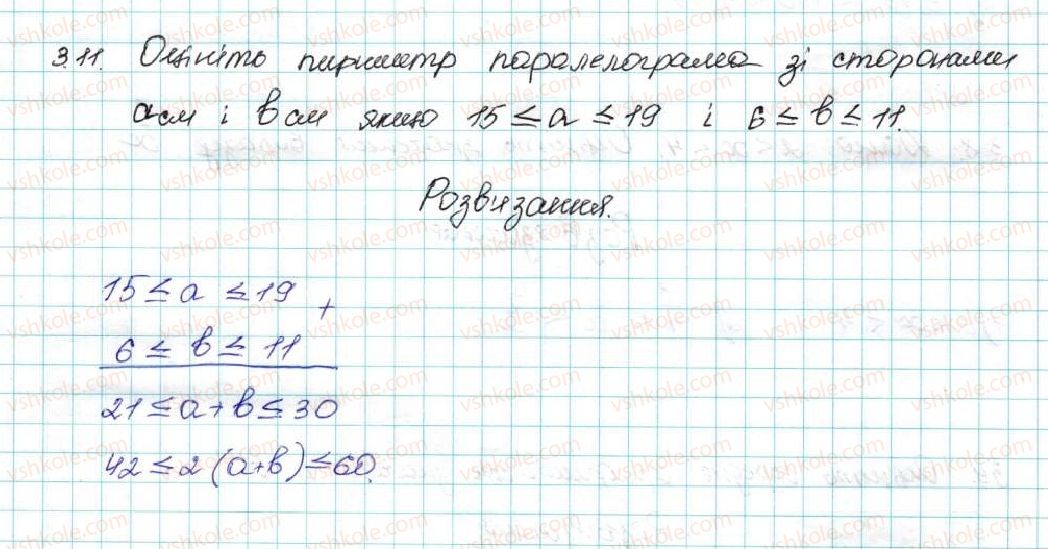 3.11. Оцініть периметр паралелограма зі сторонами
a см і b см якщо 15 ≤ a ≤ 19 і 6 ≤ b ≤ 11.
Розвязання.
15 ≤ a ≤ 19 +
6 ≤ b ≤ 11
21 ≤ a + b ≤ 30
42 ≤ 2 (a+b) ≤ 60.